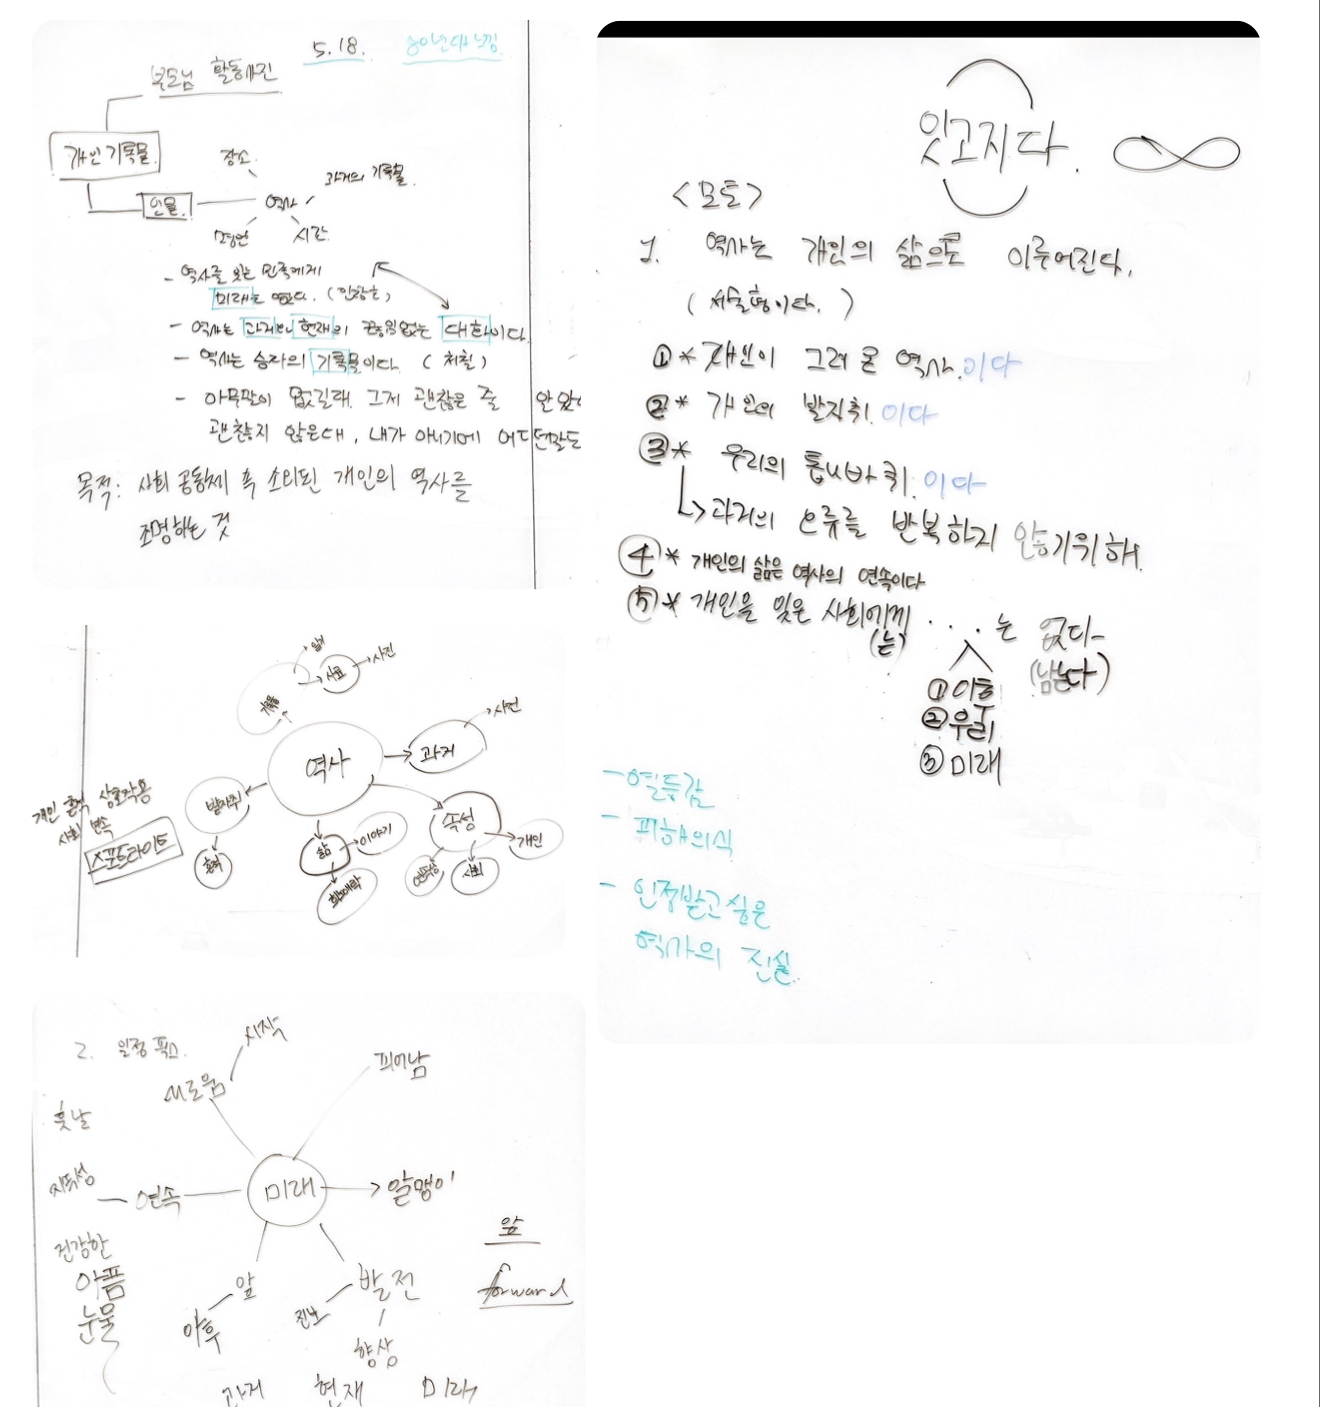 5.18.
80년대 느낌
부모님 활동사진
개인 기록물
장소
과거의 기록물
인물
역사
시간
- 역사를 잊는 민족에게
미래는 없다. (민창호)
- 역사는 과거와 현재의 끊임없는 대화이다.
- 역사는 승자의 기록물이다. (처칠)
- 아무말이 없길래. 그저 괜찮은 줄
괜찮지 않은데, 내가 아니기에
목적: 사회 공동체 흑 소외된 개인의 역사를
조명하는 것
잊고지다.
<모토>
1. 역사는 개인의 삶으로 이루어진다.
(서술형이다.)
① * 개인이 그려 온 역사.이다
② * 개인의 발자취.이다
③ * 우리의 톱니바퀴.이다
과거의 오류를 반복하지 않기위해.
④ * 개인의 삶은 역사의 연속이다
⑤ * 개인을 잊은 사회에게 . . . 는 없다
(는)
(남는다)
①이름
②우리
③미래
- 열등감
- 피해의식
- 인정받고싶은
역사의 진실.
사료
사진
기록물
역사
과거
사건
발자취
흔적
삶
이야기
희노애락
속성
연속성
사회
개인
개인 흔적 상호작용
사회 연속
스포트라이트
2.
시작
새로움
피어남
훗날
지속성
연속
미래
알맹이
건강한
아픔
눈물
앞
이후
발전
진보
향상
앞
forward
과거 현재 미래